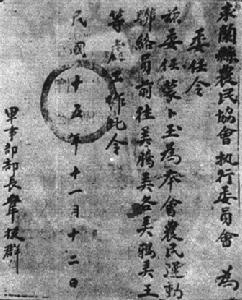 東蘭縣農民協會執行委員會 為
委任令
茲委任蒙卜玉為本會農民運動
聯絡員前往
等處工作此令
民國十五年十一月十二日
軍事部部長 拔群